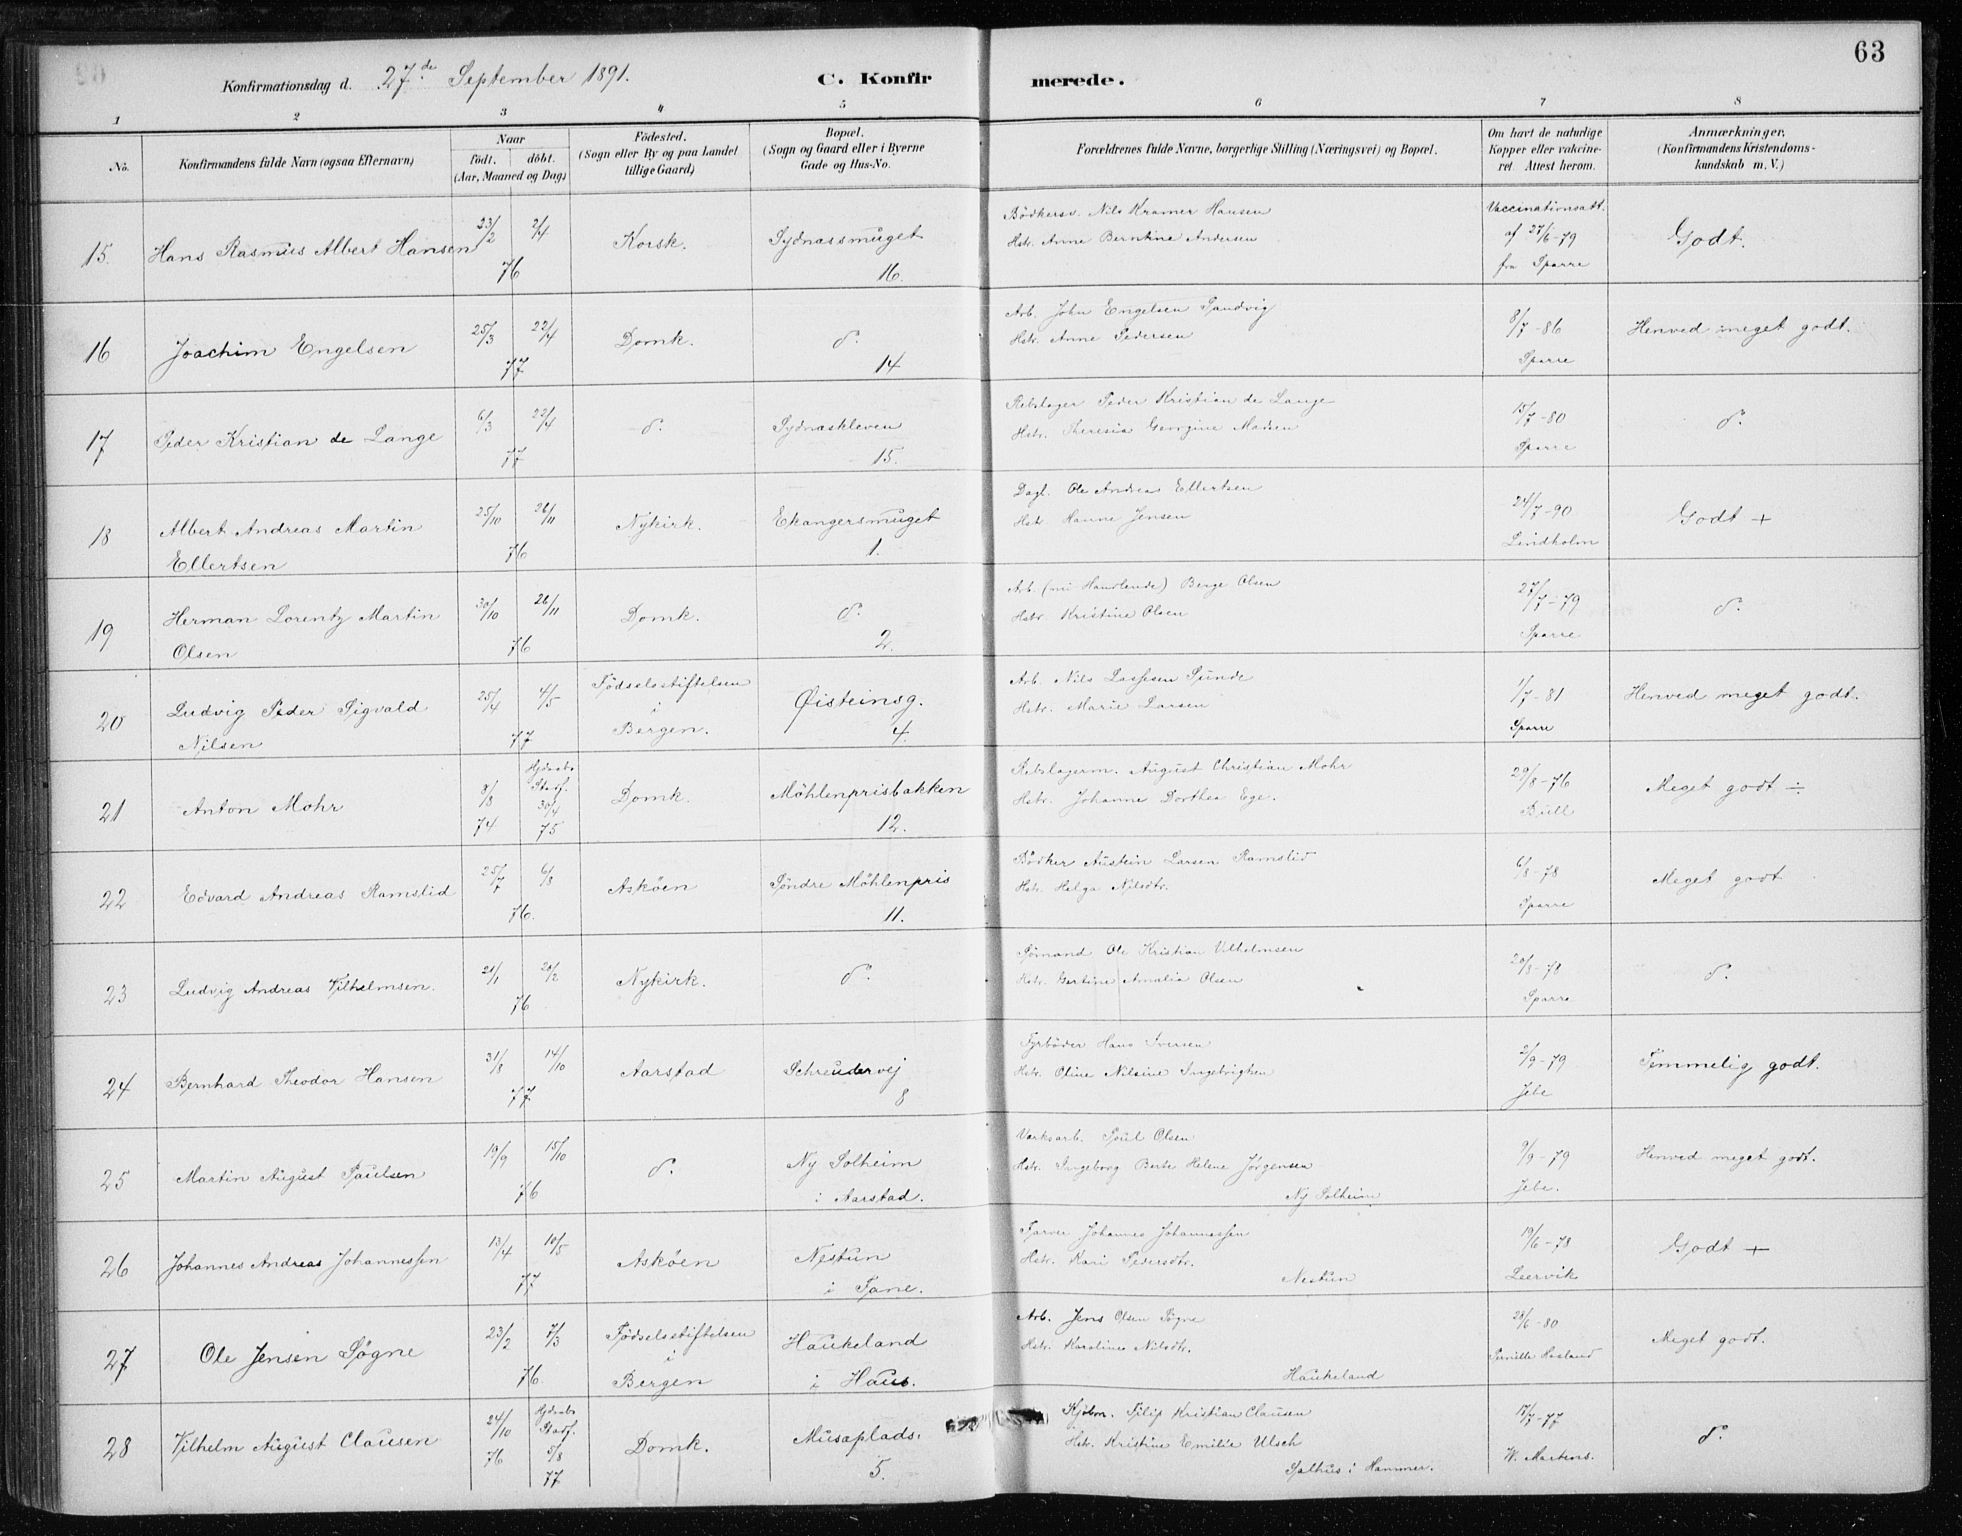 63
Konfirmationsdag d. 27de September 1891.
C. Konfirmerede.
1 2 3 4 5 6 7 8
No.
Konfirmandens fulde Navn (ogsaa Efternavn)
Naar
födt. döbt.
(Aar, Maaned og Dag)
Födested.
(Sogn eller By og paa Landet
tillige Gaard)
Bopæl.
(Sogn og Gaard eller i Byerne
Gade og Hus-No.
Forældrenes fulde Navne, borgerlige Stilling (Næringsvei) og Bopæl.
Om havt de naturlige
Kopper eller vakcine-
ret. Attest herom.
Anmærkninger.
(Konfirmandens Kristendoms-
kundskab m. V.)
15. Hans Rasmus Albert Hansen
23/2 2/4
76
Korsk.
Sydnæssmuget
16.
Bödkersv. Nils Kramer Hansen
Hstr. Anne Berntine Andersen
Vaccinationsatt.
af 27/6-79
fra Sparre
Godt.
16 Joachim Engelsen
25/3 22/4
77
Domk.
d°.
14
Arb. John Engelsen Sandvig
Hstr. Anne Pedersen
8/7-86
Sparre
Henved meget godt.
17 Peder Kristian de Lange
6/3 22/4
77
d°.
Sydnæskleven
15.
Rebslager Peder Kristian de Lange
Hstr. Theresia Georgine Madsen
15/7-80
Sparre
d°.
18 Albert Andreas Martin
Ellertsen
25/10 26/11
76
Nykirk.
Ekangersmuget
1.
Dagl. Ole Andreas Ellertsen
Hstr. Hanne Jensen
24/7-90
Lindholm
Godt +
19 Herman Lorentz Martin
Olsen
30/10 26/11
76
Domk.
d°.
2.
Arb. (nu Handlende) Berge Olsen
Hstr. Kristine Olsen
27/7-79
Sparre
d°.
20 Ludvig Peder Sigvald
Nilsen
25/4 4/5
77
Födselsstiftelsen
i
Bergen.
Øisteinsg.
4.
Arb. Nils Lassesen Sunde
Hstr. Marie Larsen
1/7-81
Sparre
Henved meget godt.
21 Anton Mohr
8/8
74
Hjdøbt
Stadf.
30/4
75
Domk.
Möhlenprisbakken
12.
Rebslagerm. August Christian Mohr
Hstr. Johanne Dorthea Ege.
29/8-76
Bull
Meget godt ÷
22 Edvard Andreas Ramslid
25/7 6/8
76.
Asköen
Söndre Möhlenpris
11.
Bödker Austein Larsen Ramslid
Hstr. Helga Nilsdtr.
6/8-78
Sparre
Meget godt
23 Ludvig Andreas Vilhelmsen.
21/1 20/2
76
Nykirk.
d°.
Sömand Ole Kristian Vilhelmsen
Hstr. Gertine Amalia Olsen
20/8-78
Sparre
d°.
24 Bernhard Theodor Hansen
31/8 14/10
77
Aarstad
Schreudervej
8
Fyrböder Hans Iversen
Hstr. Oline Nilsine Ingebrigtsen
2/9-79
Jebe
Temmelig godt.
25 Martin August Paulsen
19/9 15/10
76
d°.
Ny Solheim
i Aarstad.
Værksarb. Poul Olsen
Hstr. Ingeborg Berte Helene Jörgensen
Ny Solheim
9/9-79
Jebe.
Henved meget godt.
26 Johannes Andreas Johannessen
13/4 10/5
77
Asköen
Nestun
i Fane.
Farver Johannes Johannessen
Hstr. Kari Pedersdtr.
Nestun
19/6-78
Leervik
Godt +
27 Ole Jensen Søgne
23/2 7/3
76
Födselsstiftelsen
i
Bergen
Haukeland
i Haus.
Arb. Jens Olsen Søgne
Hstr. Karoline Nilsdtr.
Haukeland
28/6-80
Pernille Haaland
Meget godt.
28 Vilhelm August Clausen
24/10
76
Hjdøbt
Stadf.
5/8
77
Domk.
Musæplads.
5.
Kjöbm. Filip Kristian Clausen
Hstr. Kristine Emilie Ulsch
Salhus i Hammer.
17/7-77
W. Martens.
d°.